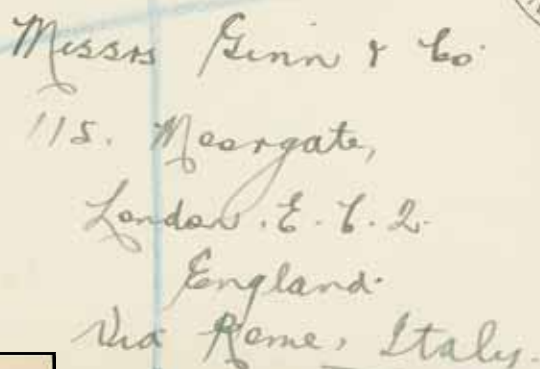 Messrs Ginn & Co.
115. Moorgate,
London. E. C. 2.
England.
Via Rome, Italy.